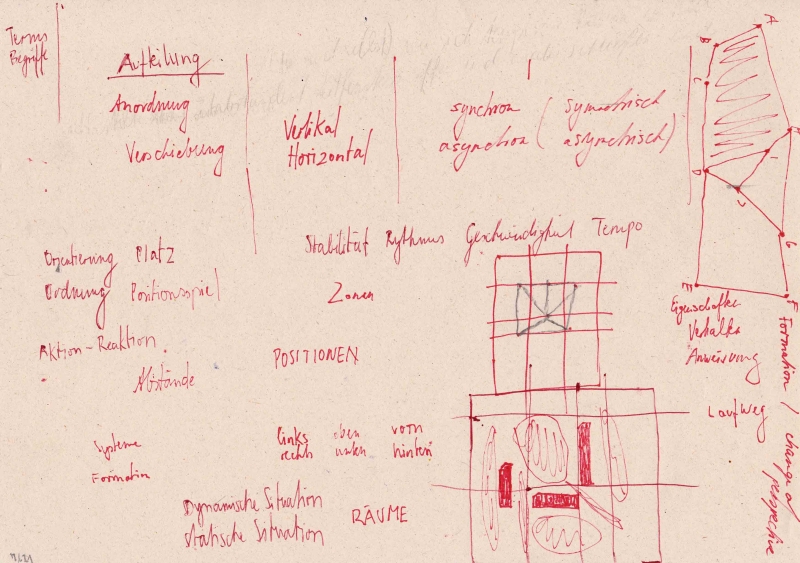 Terms
Begriffe
Aufteilung
Anordnung
Verschiebung
Vertikal
Horizontal
synchron ( symmetrisch
asynchron ( asymetrisch)
Orientierung Platz
Ordnung Positionsspiel
Stabilität Rythmus Geschwindigkeit Tempo
Zonen
Aktion-Reaktion
Abstände
POSITIONEN
Systeme
Formation
links oben vorn
rechts unten hinten
Dynamische Situation
statische Situation
RÄUME
A
B
C
D
E
F
G
H
I
J
Eigenschaften
Verhalten
Anweisung
Laufweg
Formation / change of
perspective